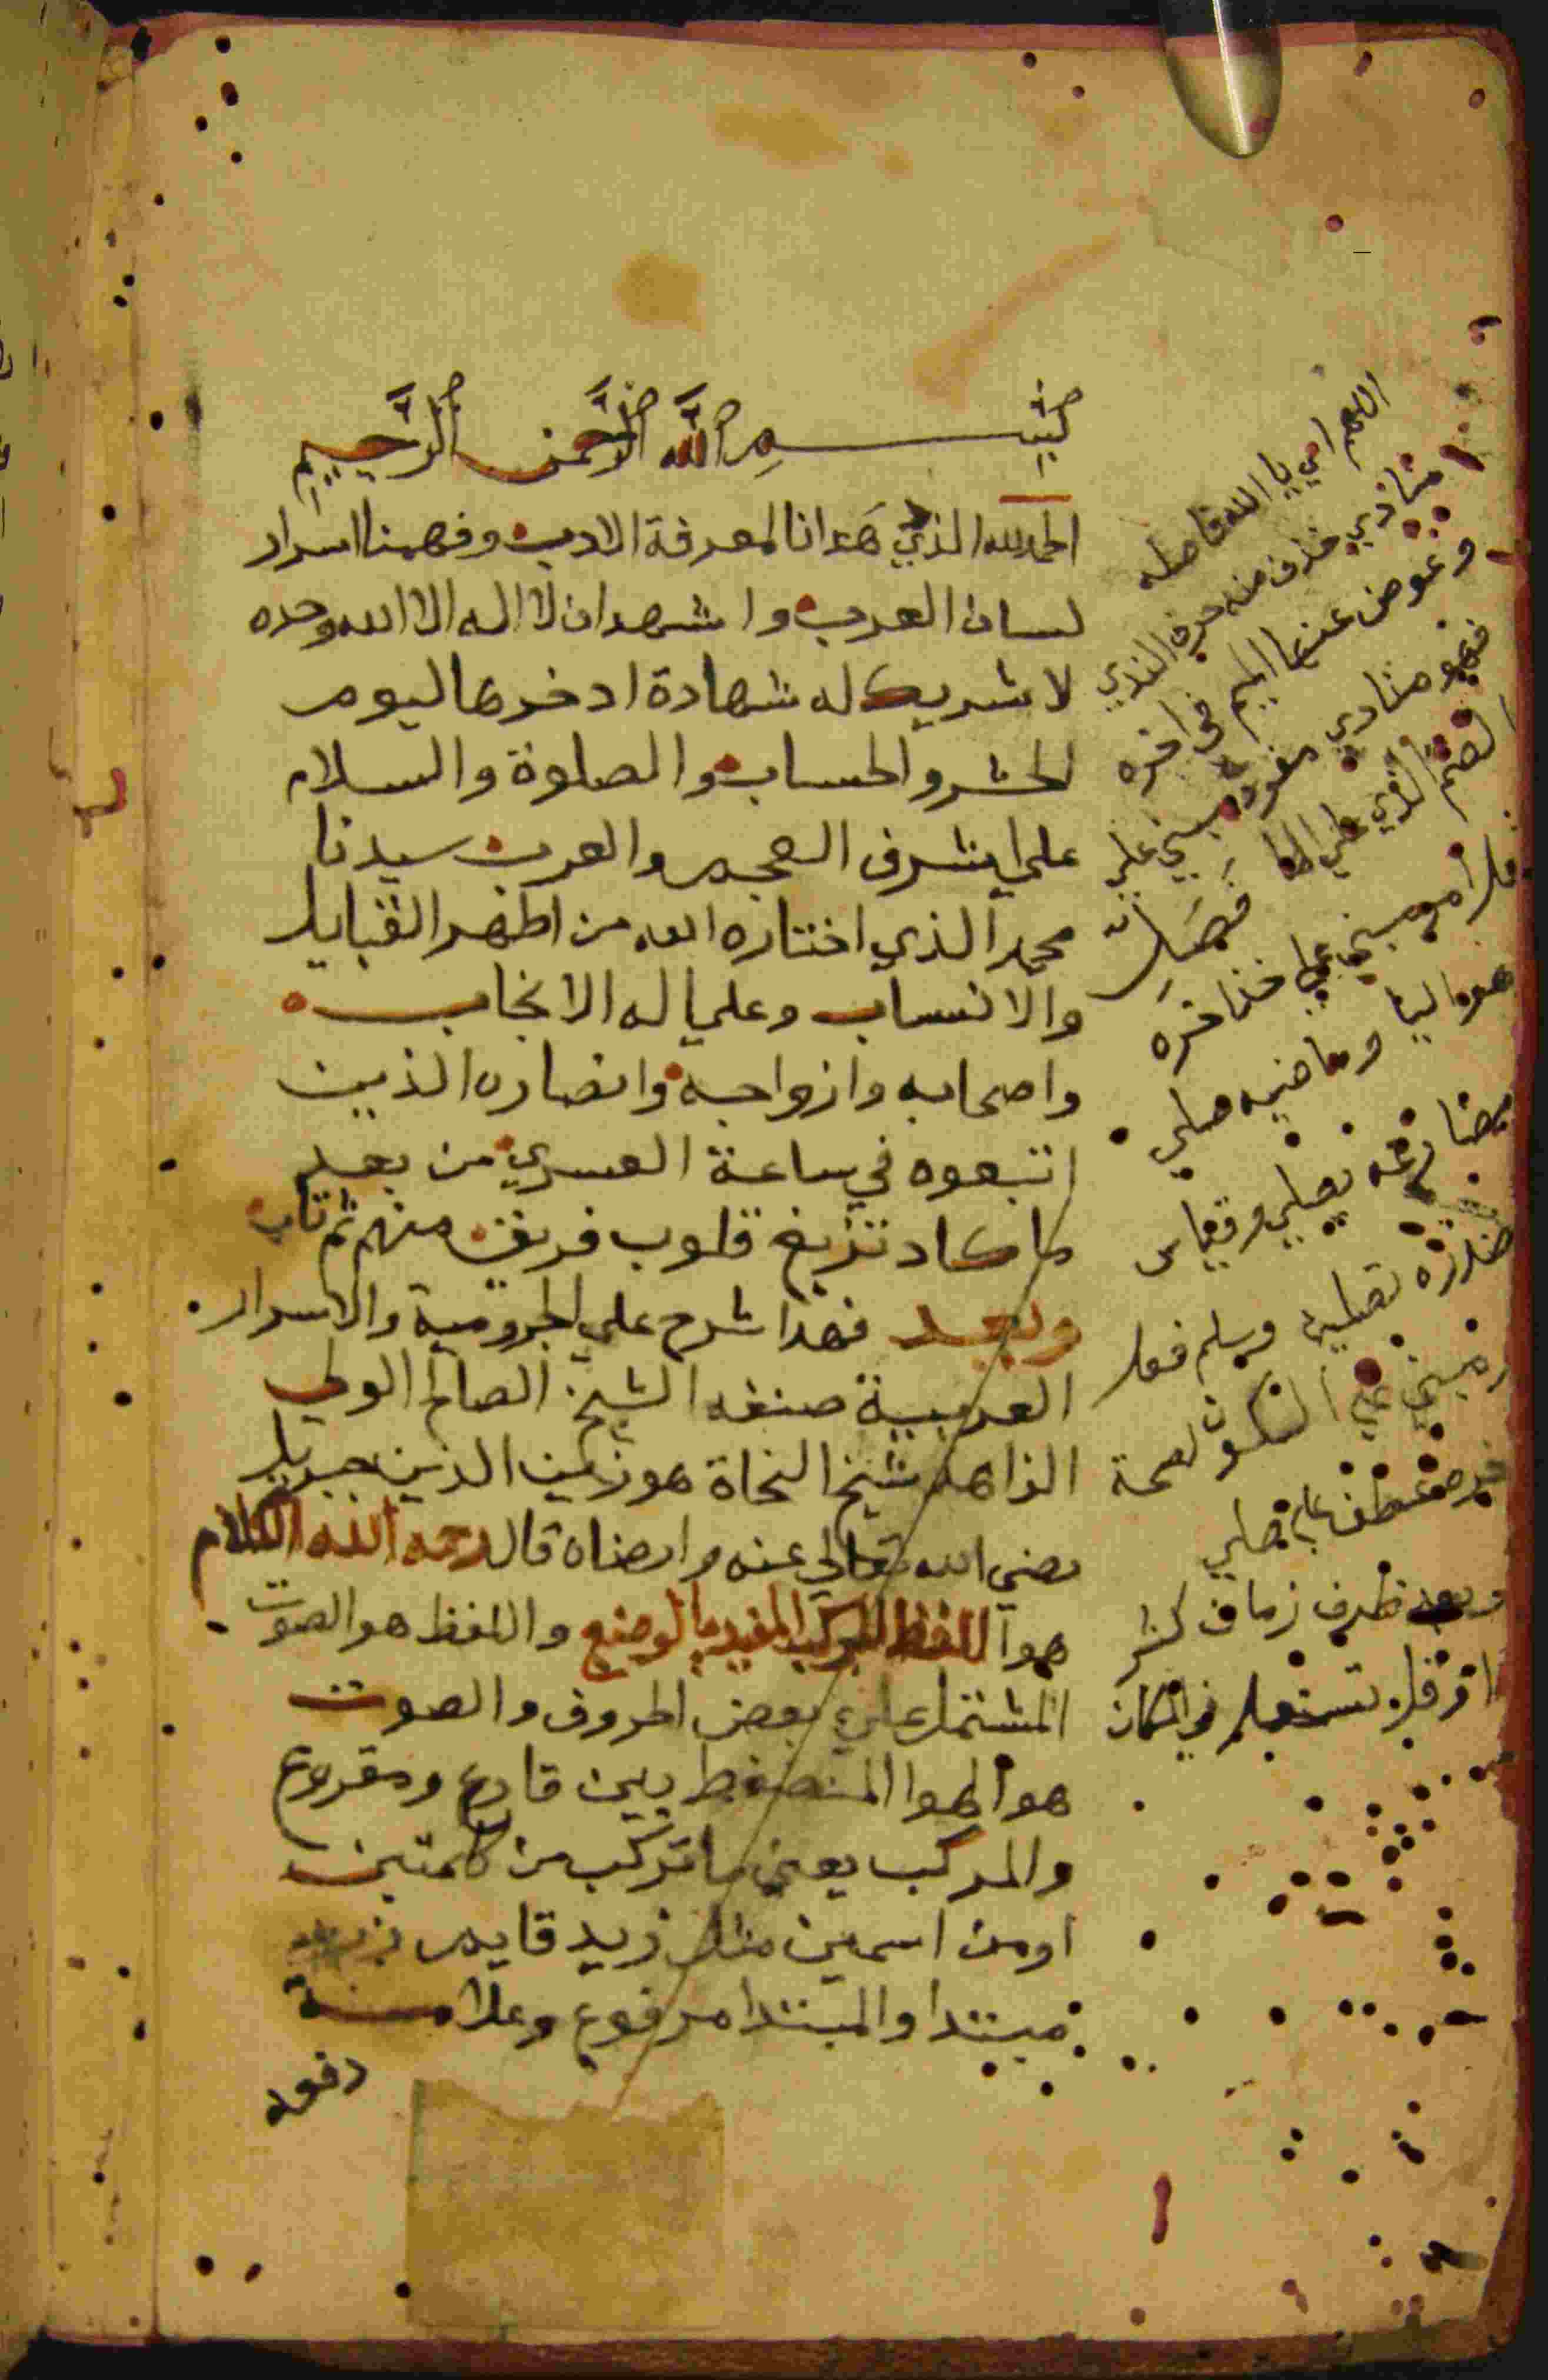 بسم الله الرحمن الرحيم
الحمد لله الذي هدانا لمعرفة الادب وفهمنا اسرار
لسان العرب واشهد ان لا اله الا الله وحده
لا شريك له شهادة ادخرها ليوم
الحشر والحساب والصلوة والسلام
علي اشرف العجم والعرب سيدنا
محمد الذي اختاره الله من اطهر القبايل
والانساب وعلي اله الانجاب
واصحابه وازواجه وانصاره الذين
اتبعوه في ساعة العسري من بعد
ما كاد تزيغ قلوب فريق منهم ثم تاب
وبعد فهذا شرح علي الجرومية والاسرار
العربية صنفه الشيخ الصالح الولي
الزاهد شيخ النحاة هو زين الدين جبريل
رضي الله تعالي عنه وارضاه قال رحمه الله الكلام
هو اللفظ المركب المفيد بالوضع واللفظ هو الصوت
المشتمل علي بعض الحروف والصوت
هو الهوا المنضغط بين قارع ومقروع
والمركب يعني ما تركب من كلمتين
او من اسمين مثل زيد قايم
مبتدا والمبتدا مرفوع وعلامة
رفعه
اللهم اي يا الله فاصله
منادي حذف منه حرف الندي
وعوض عنها الميم في اخره
فهو منادي مفرد مبني علي
الضم الذي علي الها فصل
فلامر مبني علي حذف اخره
هو اليا وماضيه صلي
مضارعه يصلي وقياس
مصدره تصلية وسلم فعل
مبني علي السكون لصحة
اخره عطف علي صلي
وبعد ظرف زمان كثير
او قل تستعمل في المكان